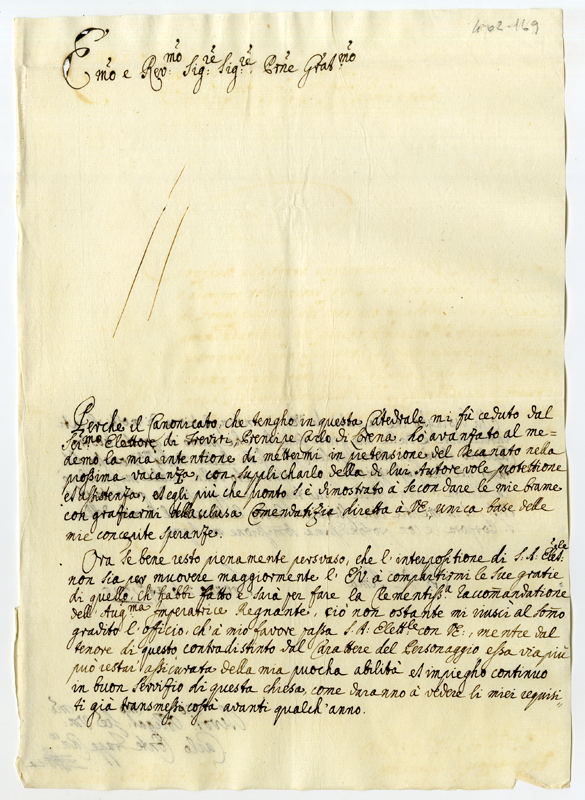 4-02-169
Emo e Revmo Sigre Sigre Prne Gratmo
Perche il Canonicato, che tengho in questa Catedrale mi fù ceduto dal
Sermo Elettore di Treviri, Prencipe Carlo di Lorena, hò avanzato al me=
demo la mia intentione di mettermi in pretensione del Decanato nella
prossima vacanza, con supplicharlo della di lui Autorevole protettione
et assistenza, et egli più che pronto s'è dimostrato à secondare le mie brame
con gratiarmi dell'acclusa Comendatizia diretta à VE, unica base delle
mie concepite speranze.
Ora se bene resto pienamente persvaso, che l'interpositione di S. A. Elettle
non sia per muovere maggiormente l'EV à compartirmi le sue gratie
di quello, ch'habbi fatto e sarà per fare la Clementissa raccomandatione
dell'Augma Imperatrice Regnante, ciò non ostante mi riuscì al somo
gradito l'officio, ch'à mio favore passa S. A. Elettle con VE, mentre dal
tenore di questo contradistinto dal Carattere del Personaggio essa via più
può restar assicurata della mia puocha abilità et impiegho continuo
in buon Servissio di questa chiesa, come daranno à vedere li miei requisi-
ti già transmessi costà avanti qualch'anno.